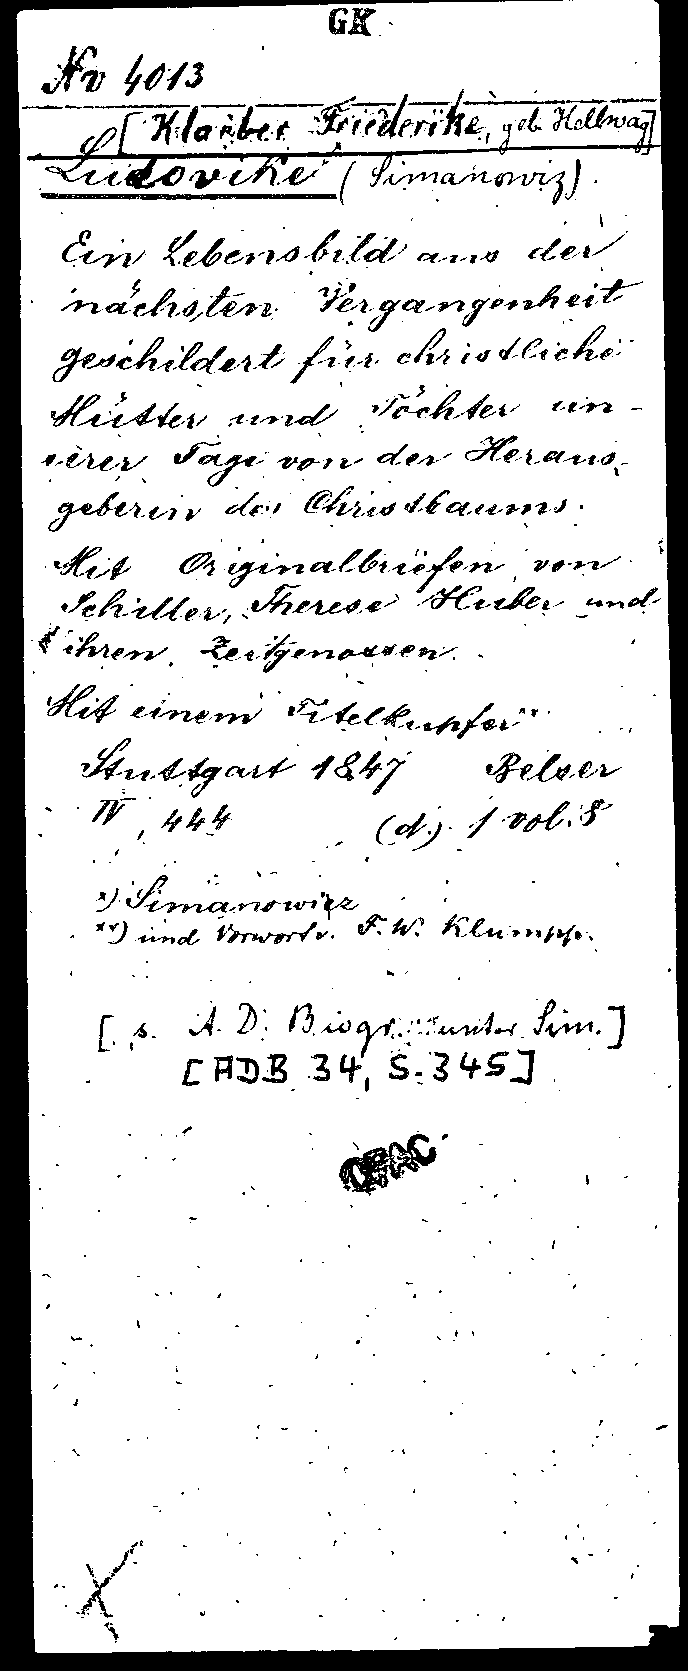 GK
Nv 4013
[Klaiber Friederike, geb. Hellwag]
Ludovike *) (Simanowiz).
Ein Lebensbild aus der
nächsten Vergangenheit
geschildert für christliche
Mütter und Töchter un-
serer Tage von der Heraus-
geberin des Christbaums.
Mit Originalbriefen von
Schiller, Therese Huber und
ihren Zeitgenossen.
Mit einem Titelkupfer **)
Stuttgart 1847 Belser
IV, 444 (d.) 1 vol. 8
*) Simanowicz
**) und Vorwort v. F. W. Klumpp.
[s. A. D. Biogr. unter Sim.]
[ADB 34, S. 345]
OPAC